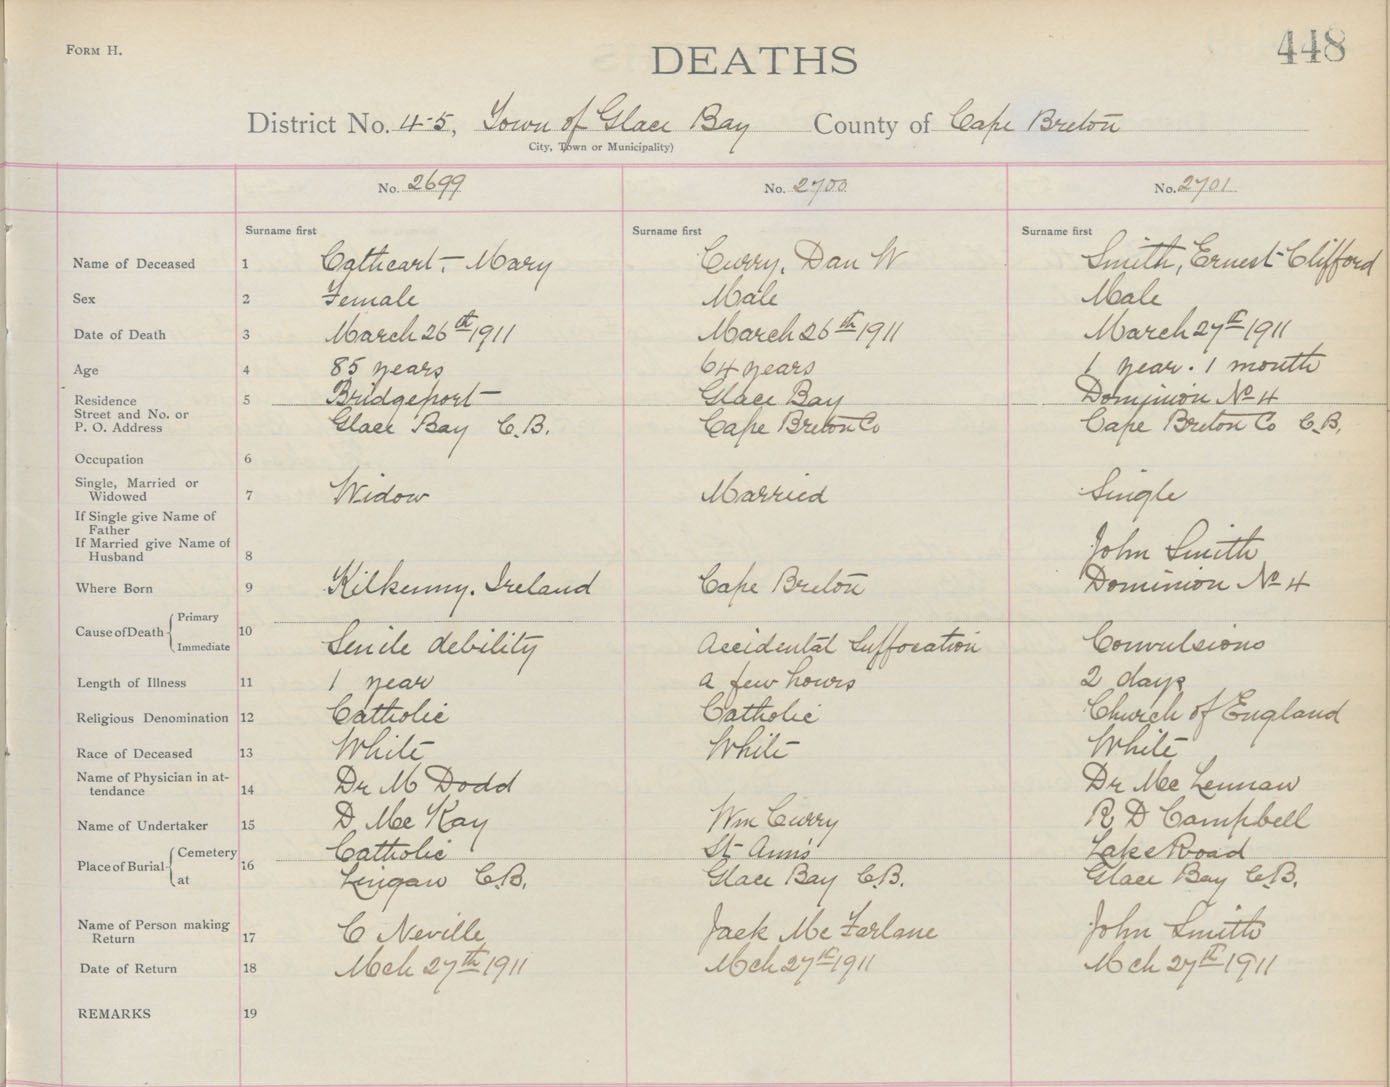 FORM H.
448
DEATHS
District No. 4-5, Town of Glace Bay County of Cape Breton
City, Town or Municipality)
No. 2699 No. 2700 No. 2701
Surname first Surname first Surname first
Name of Deceased 1 Cathcart, - Mary Curry, Dan W Smith, Ernest Clifford
Sex 2 Female Male Male
Date of Death 3 March 26th 1911 March 26th 1911 March 27th 1911
Age 4 85 years 64 years 1 year . 1 month
Residence 5 Bridgeport Glace Bay Dominion No 4
Street and No. or
P. O. Address Glace Bay C.B. Cape Breton Co Cape Breton Co C.B.
Occupation 6
Single, Married or
Widowed 7 Widow Married Single
If Single give Name of
Father
If Married give Name of
Husband 8 John Smith
Where Born 9 Kilkenny. Ireland Cape Breton Dominion No 4
Cause of Death Primary
10
Immediate Senile debility Accidental Suffocation Convulsions
Length of Illness 11 1 year a few hours 2 days
Religious Denomination 12 Catholic Catholic Church of England
Race of Deceased 13 White White White
Name of Physician in at-
tendance 14 Dr M Dodd Dr Mc Lennan
Name of Undertaker 15 D Mc Kay Wm Curry R D Campbell
Place of Burial Cemetery 16 Catholic St Ann's Lake Road
at Lingan C.B. Glace Bay C.B. Glace Bay C.B.
Name of Person making
Return 17 C Neville Jack Mc Farlane John Smith
Date of Return 18 Mch 27th 1911 Mch 27th 1911 Mch 27th 1911
REMARKS 19